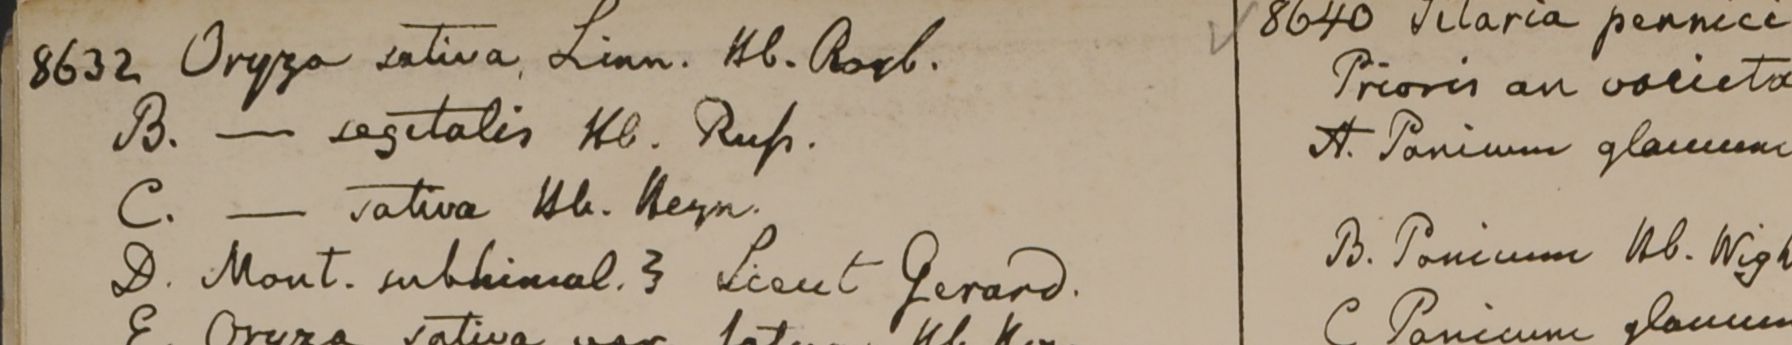 8632 Oryza sativa, Linn. Hb. Roxb.
B. — segetalis Hb. Russ.
C. — sativa Hb. Heyn.
D. Mont. subhimal. Lieut Gerard.
E. Oryza sativa var.
8640 Setaria pennici
Prioris an varieta
A. Panicum glaucum
B. Panicum Hb. Wigh
C Panicum glaucum